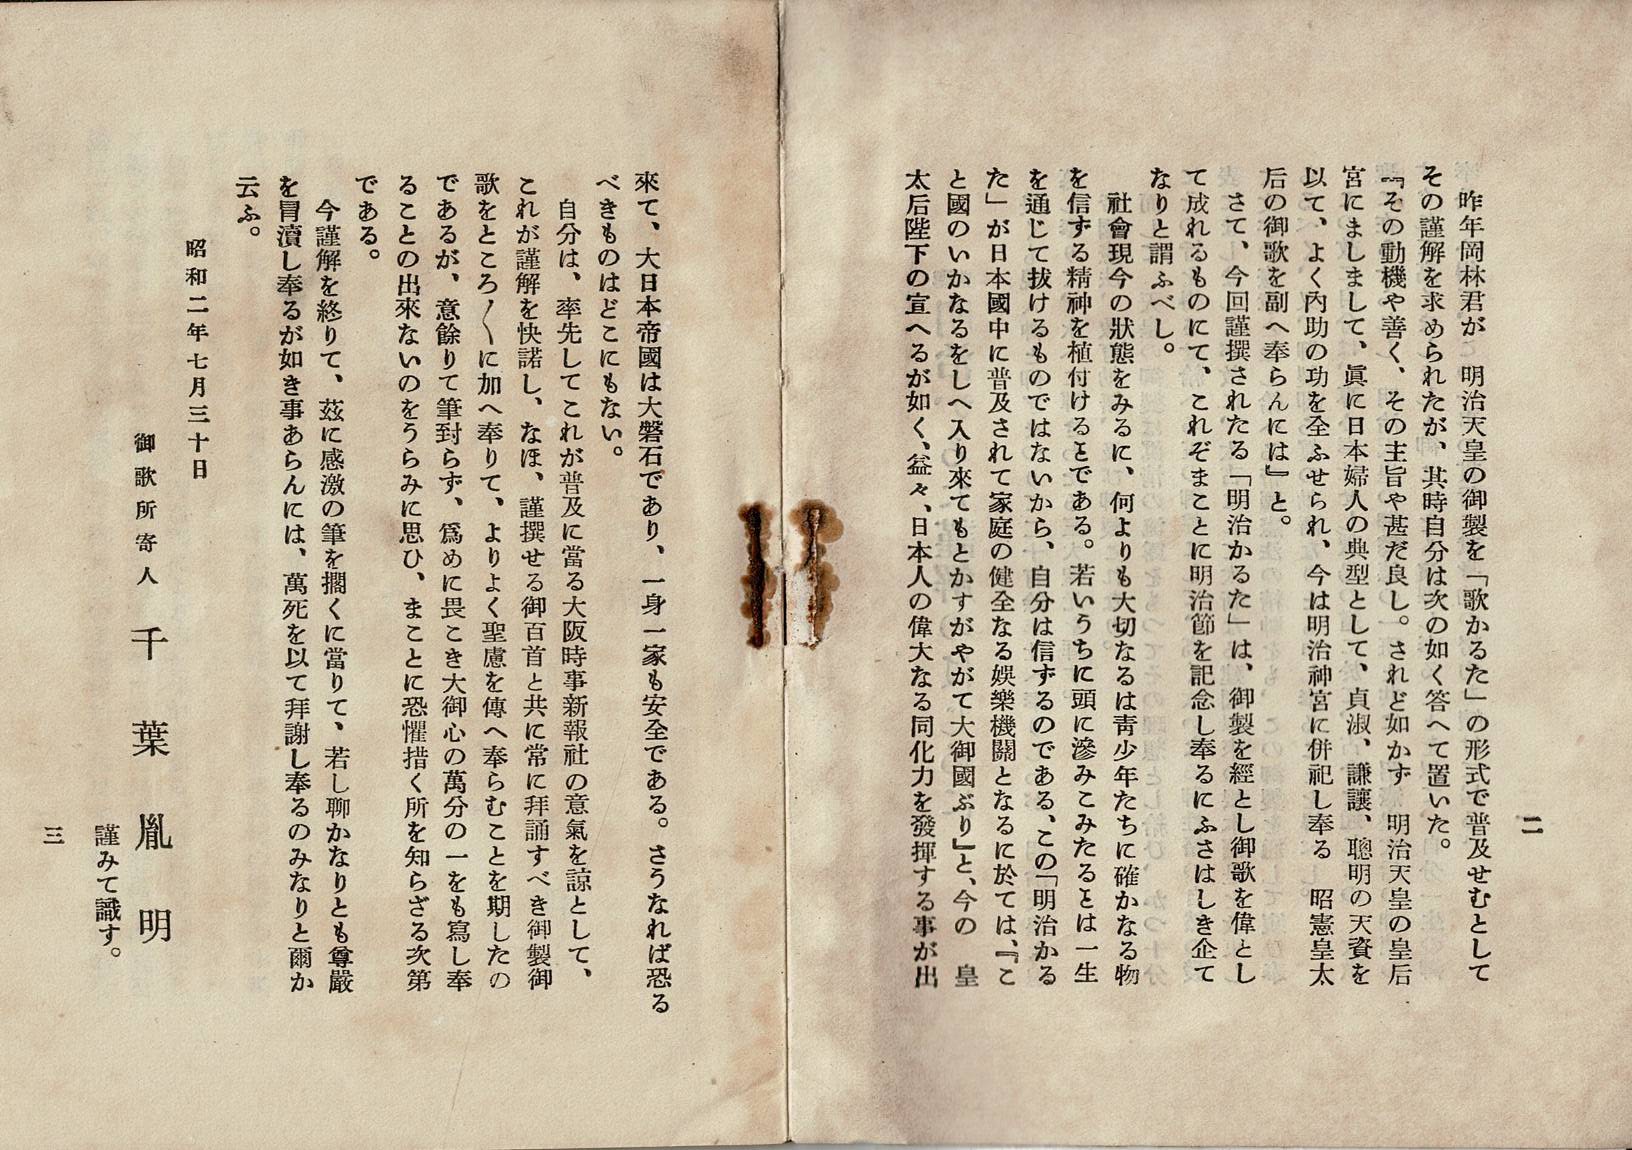 二
昨年岡林君が　明治天皇の御製を「歌かるた」の形式で普及せむとして
その謹解を求められたが、其時自分は次の如く答へて置いた。
『その動機や善く、その主旨や甚だ良し。されど如かず　明治天皇の皇后
宮にましまして、眞に日本婦人の典型として、貞淑、謙讓、聰明の天資を
以て、よく內助の功を全ふせられ、今は明治神宮に併祀し奉る　昭憲皇太
后の御歌を副へ奉らんには』と。
さて、今回謹撰されたる「明治かるた」は、御製を經とし御歌を偉とし
て成れるものにて、これぞまことに明治節を記念し奉るにふさはしき企て
なりと謂ふべし。
社會現今の狀態をみるに、何よりも大切なるは靑少年たちに確かなる物
を信ずる精神を植付けるとである。若いうちに頭に滲みこみたるとは一生
を通じて拔けるものではないから、自分は信ずるのである、この「明治かる
た」が日本國中に普及されて家庭の健全なる娯樂機關となるに於ては、『こ
と國のいかなるをしへ入り來てもとかすがやがて大御國ぶり』と、今の　皇
太后陛下の宣へるが如く、益々、日本人の偉大なる同化力を發揮する事が出
來て、大日本帝國は大磐石であり、一身一家も安全である。さうなれば恐る
べきものはどこにもない。
自分は、率先してこれが普及に當る大阪時事新報社の意氣を諒として、
これが謹解を快諾し、なほ、謹撰せる御百首と共に常に拜誦すべき御製御
歌をところ〱に加へ奉りて、よりよく聖慮を傳へ奉らむことを期したの
であるが、意餘りて筆對らず、爲めに畏こき大御心の萬分の一をも寫し奉
ることの出來ないのをうらみに思ひ、まことに恐懼措く所を知らざる次第
である。
今謹解を終りて、茲に感激の筆を擱くに當りて、若し聊かなりとも尊嚴
を冒瀆し奉るが如き事あらんには、萬死を以て拜謝し奉るのみなりと爾か
云ふ。
昭和二年七月三十日
御歌所寄人　千葉胤明
謹みて識す。
三